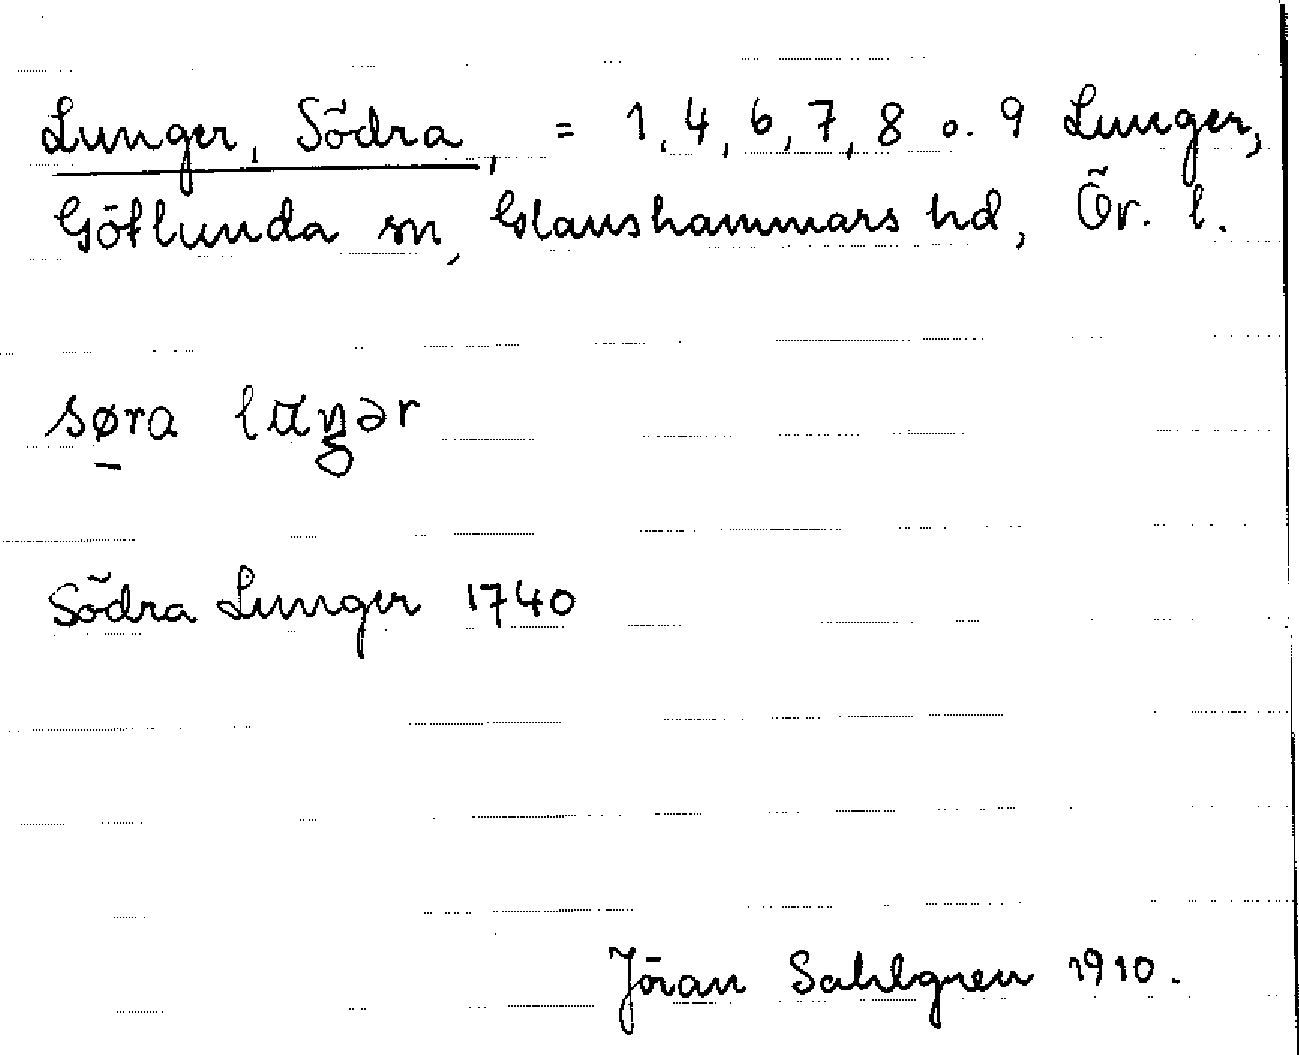 Lunger, Södra, = 1, 4, 6, 7, 8 o. 9 Lunger,
Götlunda sn, Glanshammars hd, Ör. l.
søra
Södra Lunger 1740
Jöran Sahlgren 1910.